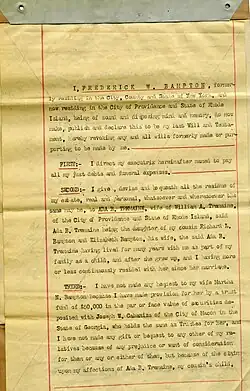 I, FREDERICK W. BAMPTON, former-
ly residing in the City, County and State of New York, and
now residing in the City of Providence and State of Rhode
Island, being of sound and disposing mind and memory, do now
make, publish and declare this to be my last Will and Testa-
ment, hereby revoking any and all wills formerly made or pur-
porting to be made by me.
FIRST:- I direct my executrix hereinafter named to pay
all my just debts and funeral expenses.
SECOND:- I give, devise and bequeath all the residue of
my estate, real and personal, whatsoever and wheresoever the
same may be, to Ada B. Tremaine, wife of William A. Tremaine,
of the City of Providence and State of Rhode Island, said
Ada B. Tremaine being the daughter of my cousin Richard L.
Bampton and Elizabeth Bampton, his wife, the said Ada B.
Tremaine having lived for many years with me as part of my
family as a child, and after she grew up, and I having more
or less continuously resided with her since her marriage.
THIRD:- I have not made any bequest to my wife Marian
E. Bampton because I have made provision for her by a trust
fund of $10,000 in the par or face value of securities de-
posited with Joseph W. Cabaniss of the City of Macon in the
State of Georgia, who holds the same as Trustee for her, and
I have not made any gift or bequest to any other of my re-
latives because of any prejudice or want of consideration
for them or any or either of them, but because of the claim
upon my affections of Ada B. Tremaine, my cousin's child,